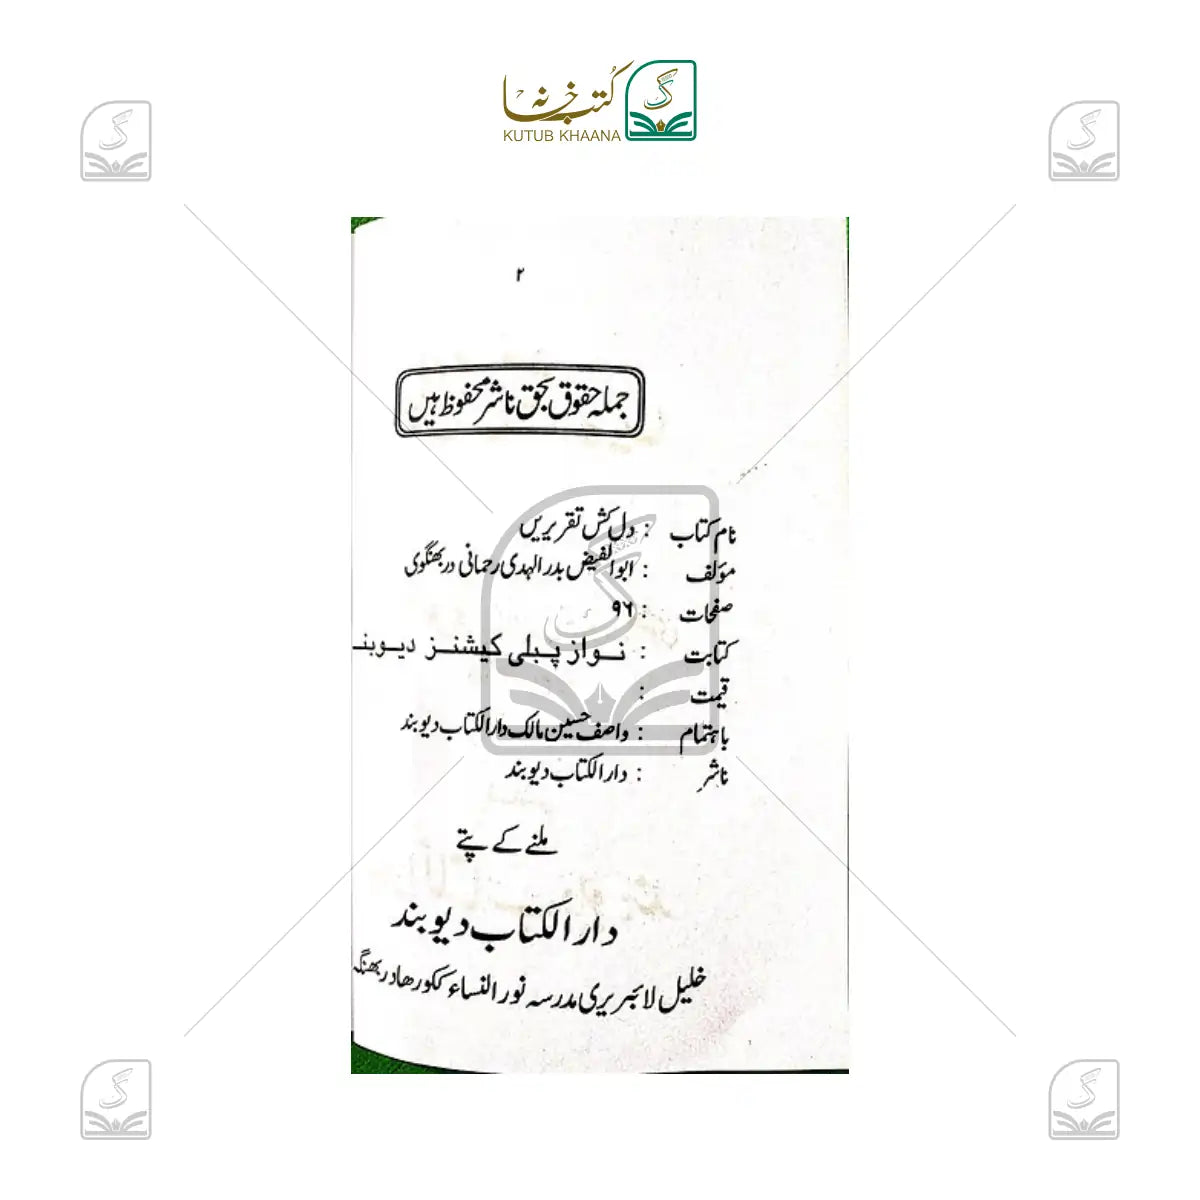 کتب خانہ
KUTUB KHAANA
۲
جملہ حقوق بحق ناشر محفوظ ہیں
نام کتاب : دل کش تقریریں
مؤلف : ابوالفیض بدرالہدی رحمانی دربھنگوی
صفحات : ۹۶
کتابت : نواز پبلی کیشنز دیوبند
قیمت :
باہتمام : واصف حسین مالک دارالکتاب دیوبند
ناشر : دارالکتاب دیوبند
ملنے کے پتے
دارالکتاب دیوبند
خلیل لائبریری مدرسہ نورالنساء ککورھا دربھنگہ